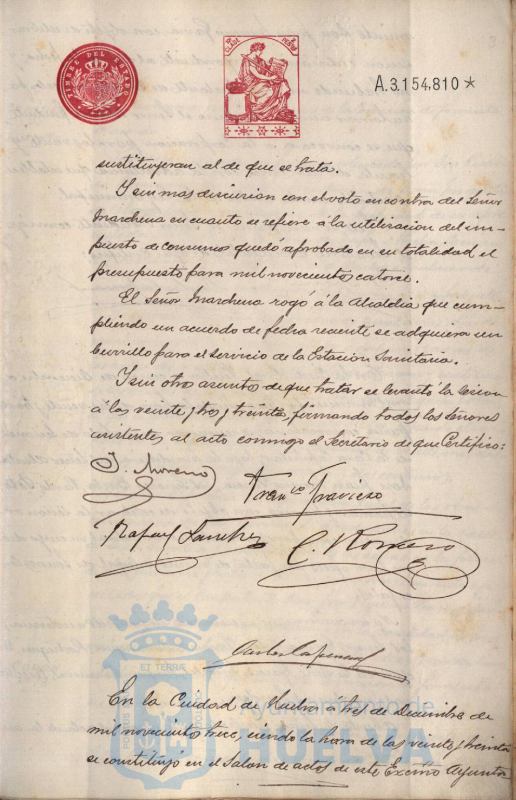 TIMBRE DEL ESTADO
A.3.154.810 *
sustituyeran al de que se trata.
I sin mas discusion con el voto en contra del Señor
Marchena en cuanto se refiere á la utilizacion del im-
puesto de consumos quedó aprobado en su totalidad el
presupuesto para mil novecientos catorce.
El Señor Marchena rogó á la Alcaldia que cum-
pliendo un acuerdo de fecha reciente se adquiera un
burrillo para el servicio de la Estacion Sanitaria.
I sin otro asunto de que tratar se levantó la sesion
á las veinte y tres y treinta, firmando todos los señores
asistentes al acto conmigo el Secretario de que Certifico:
J. Moreno
Franco Travieso
Rafael Sanchez
C. Romero
ET TERRÆ
En la Ciudad de Huelva á tres de Diciembre de
mil novecientos trece, siendo la hora de las veinte y treinta
se constituyó en el Salon de actos de este Excmo Ayunta
Ayuntamiento de
HUELVA